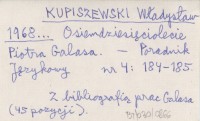 KUPISZEWSKI Władysław
1968... Osiemdziesięciolecie
Piotra Galasa. – Poradnik
Językowy nr 4: 184-185.
Z bibliografią prac Galasa
(45 pozycji).